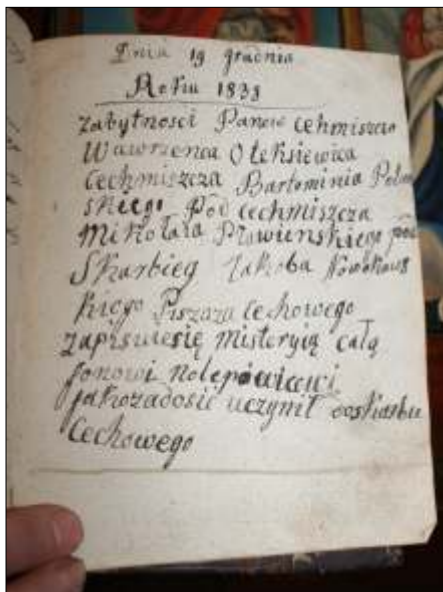 Dnia 19 grudnia
Roku 1833
Zabytnosci Panow Cehmiszcza
Wawrzenca Oleksiewica
Cechmiszcza Bartominia Polan
skiego Pod cechmiszcza
Mikołaia Pławienskiego pod
Skarbieg Jakoba Nowakows
kiego Piszaza Cechowego
zapisuiesię Misteryią całą
Jonowi Nolepowicewi
jakozadosic uczynił doskarbu
Cechowego